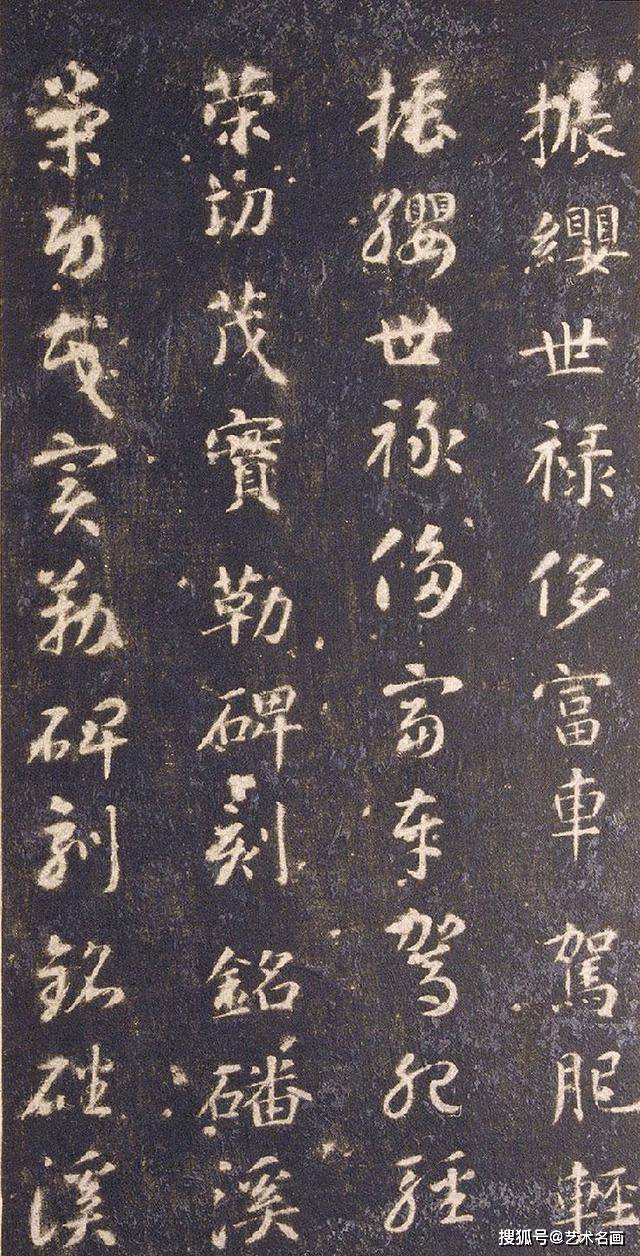 振纓世禄侈富車駕肥輕
振纓世禄侈富車駕肥輕
策功茂實勒碑刻銘磻溪
策功茂實勒碑刻銘磻溪
搜狐号@艺术名画